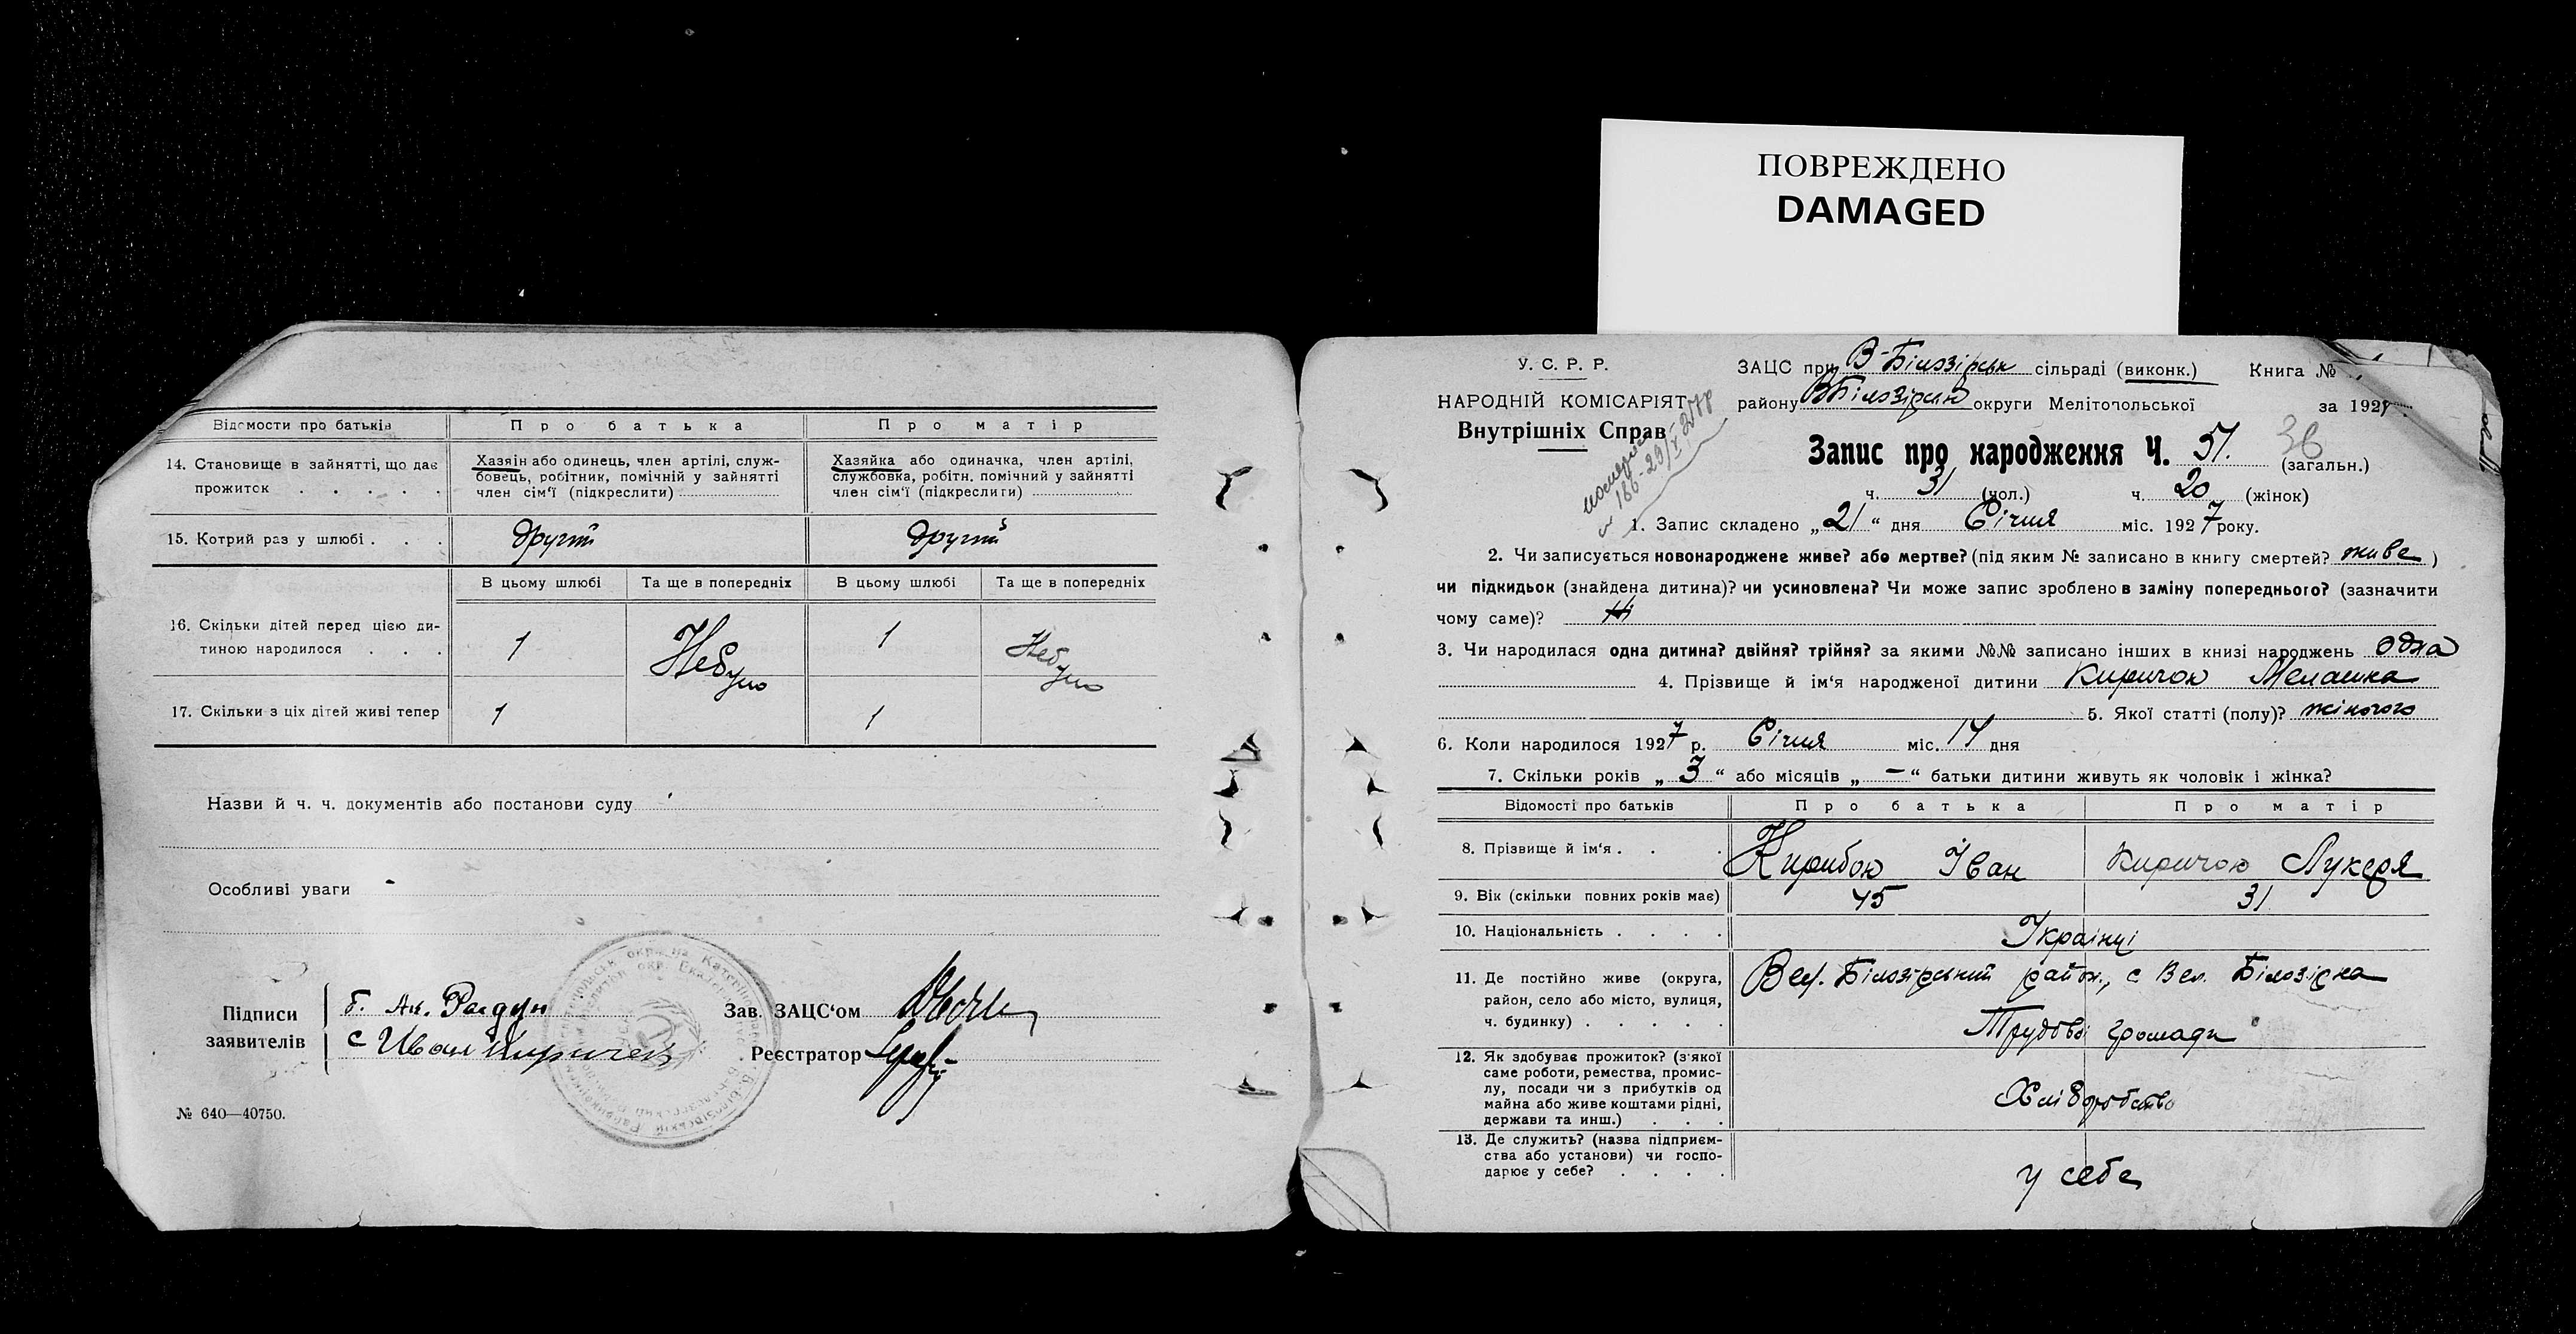 ПОВРЕЖДЕНО
DAMAGED
Відомости про батьків
Про батька
Про матір
14. Становище в зайнятті, що дає прожиток . . . . .
Хазяін або одинець, член артілі, служ-
бовець, робітник, помічній у зайнятті
член сім'ї (підкреслити)
Хазяйка або одиначка, член артілі,
службовка, робітн. помічний у зайнятті
член сім'ї (підкреслити)
15. Котрий раз у шлюбі . . .
другий
другий
В цьому шлюбі
Та ще в попередніх
В цьому шлюбі
Та ще в попередніх
16. Скільки дітей перед цією ди-
тиною народилося . . .
1
Небуло
1
Небуло
17. Скільки з ціх дітей живі тепер
1
1
Назви й ч. ч. документів або постанови суду
Особливі уваги -
Підписи
заявителів
б. Ан.
с Иван Киричек
Зав. ЗАЦС‘ом
Реєстратор
№ 640—40750.
У. С. Р. Р.
НАРОДНІЙ КОМІСАРІЯТ
Внутрішніх Справ
ЗАЦС при В-Білозірськ сільраді (виконк.) Книга №
району ВБілозірськ округи Мелітопольської за 192
Запис про народження Ч. 51. 36 (загальн.)
ч. 31 (чол.) ч. 20 (жінок)
1. Запис складено „21“ дня Січня міс. 1927 року.
2. Чи записується новонароджене живе? або мертве? (під яким № записано в книгу смертей? живе )
чи підкидьок (знайдена дитина)? чи усиновлена? Чи може запис зроблено в заміну попереднього? (зазначити
чому саме)? Ні
3. Чи народилася одна дитина? двійня? трійня? за якими №№ записано інших в книзі народжень одна
4. Прізвище й ім‘я народженої дитини Киричок Мелашка
5. Якої статті (полу)? жіночого
6. Коли народилося 1927 р. Січня міс. 14 дня
7. Скільки років „ 3 “ або місяців „ - “ батьки дитини живуть як чоловік і жінка?
Відомості про батьків
Про батька
Про матір
8. Прізвище й ім‘я . . .
Киричок Іван
Киричок Лукеря
9. Вік (скільки повних років має)
45
31
10. Національність . . . .
Українці
11. Де постійно живе (округа,
район, село або місто, вулиця,
ч. будинку) . . . . .
Вел. Білозірський район, с Вел. Білозірка
Трудової громади
12. Як здобуває прожиток? (з'якої
саме роботи, ремества, промис-
лу, посади чи з прибутків од
майна або живе коштами рідні,
держави та инш.) . . .
Хліборобство
13. Де служить? (назва підприєм-
ства або установи) чи госпо-
дарює у себе? . . . .
у себе